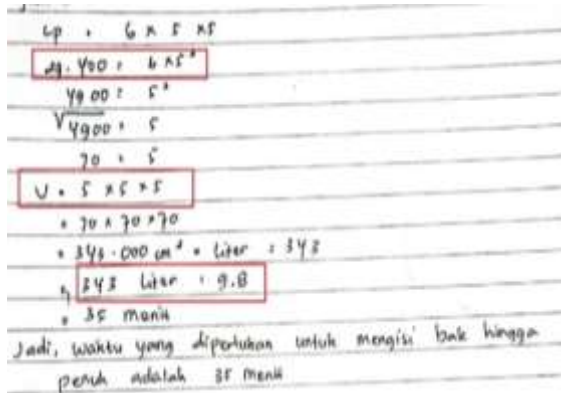 Lp = 6 x s x s
29.400 = 6 x s²
4900 = s²
√4900 = s
70 = s
V = s x s x s
= 70 x 70 x 70
= 343.000 cm³ = liter = 343
= 343 liter : 9.8
= 35 menit
Jadi, waktu yang diperlukan untuk mengisi bak hingga
penuh adalah 35 menit